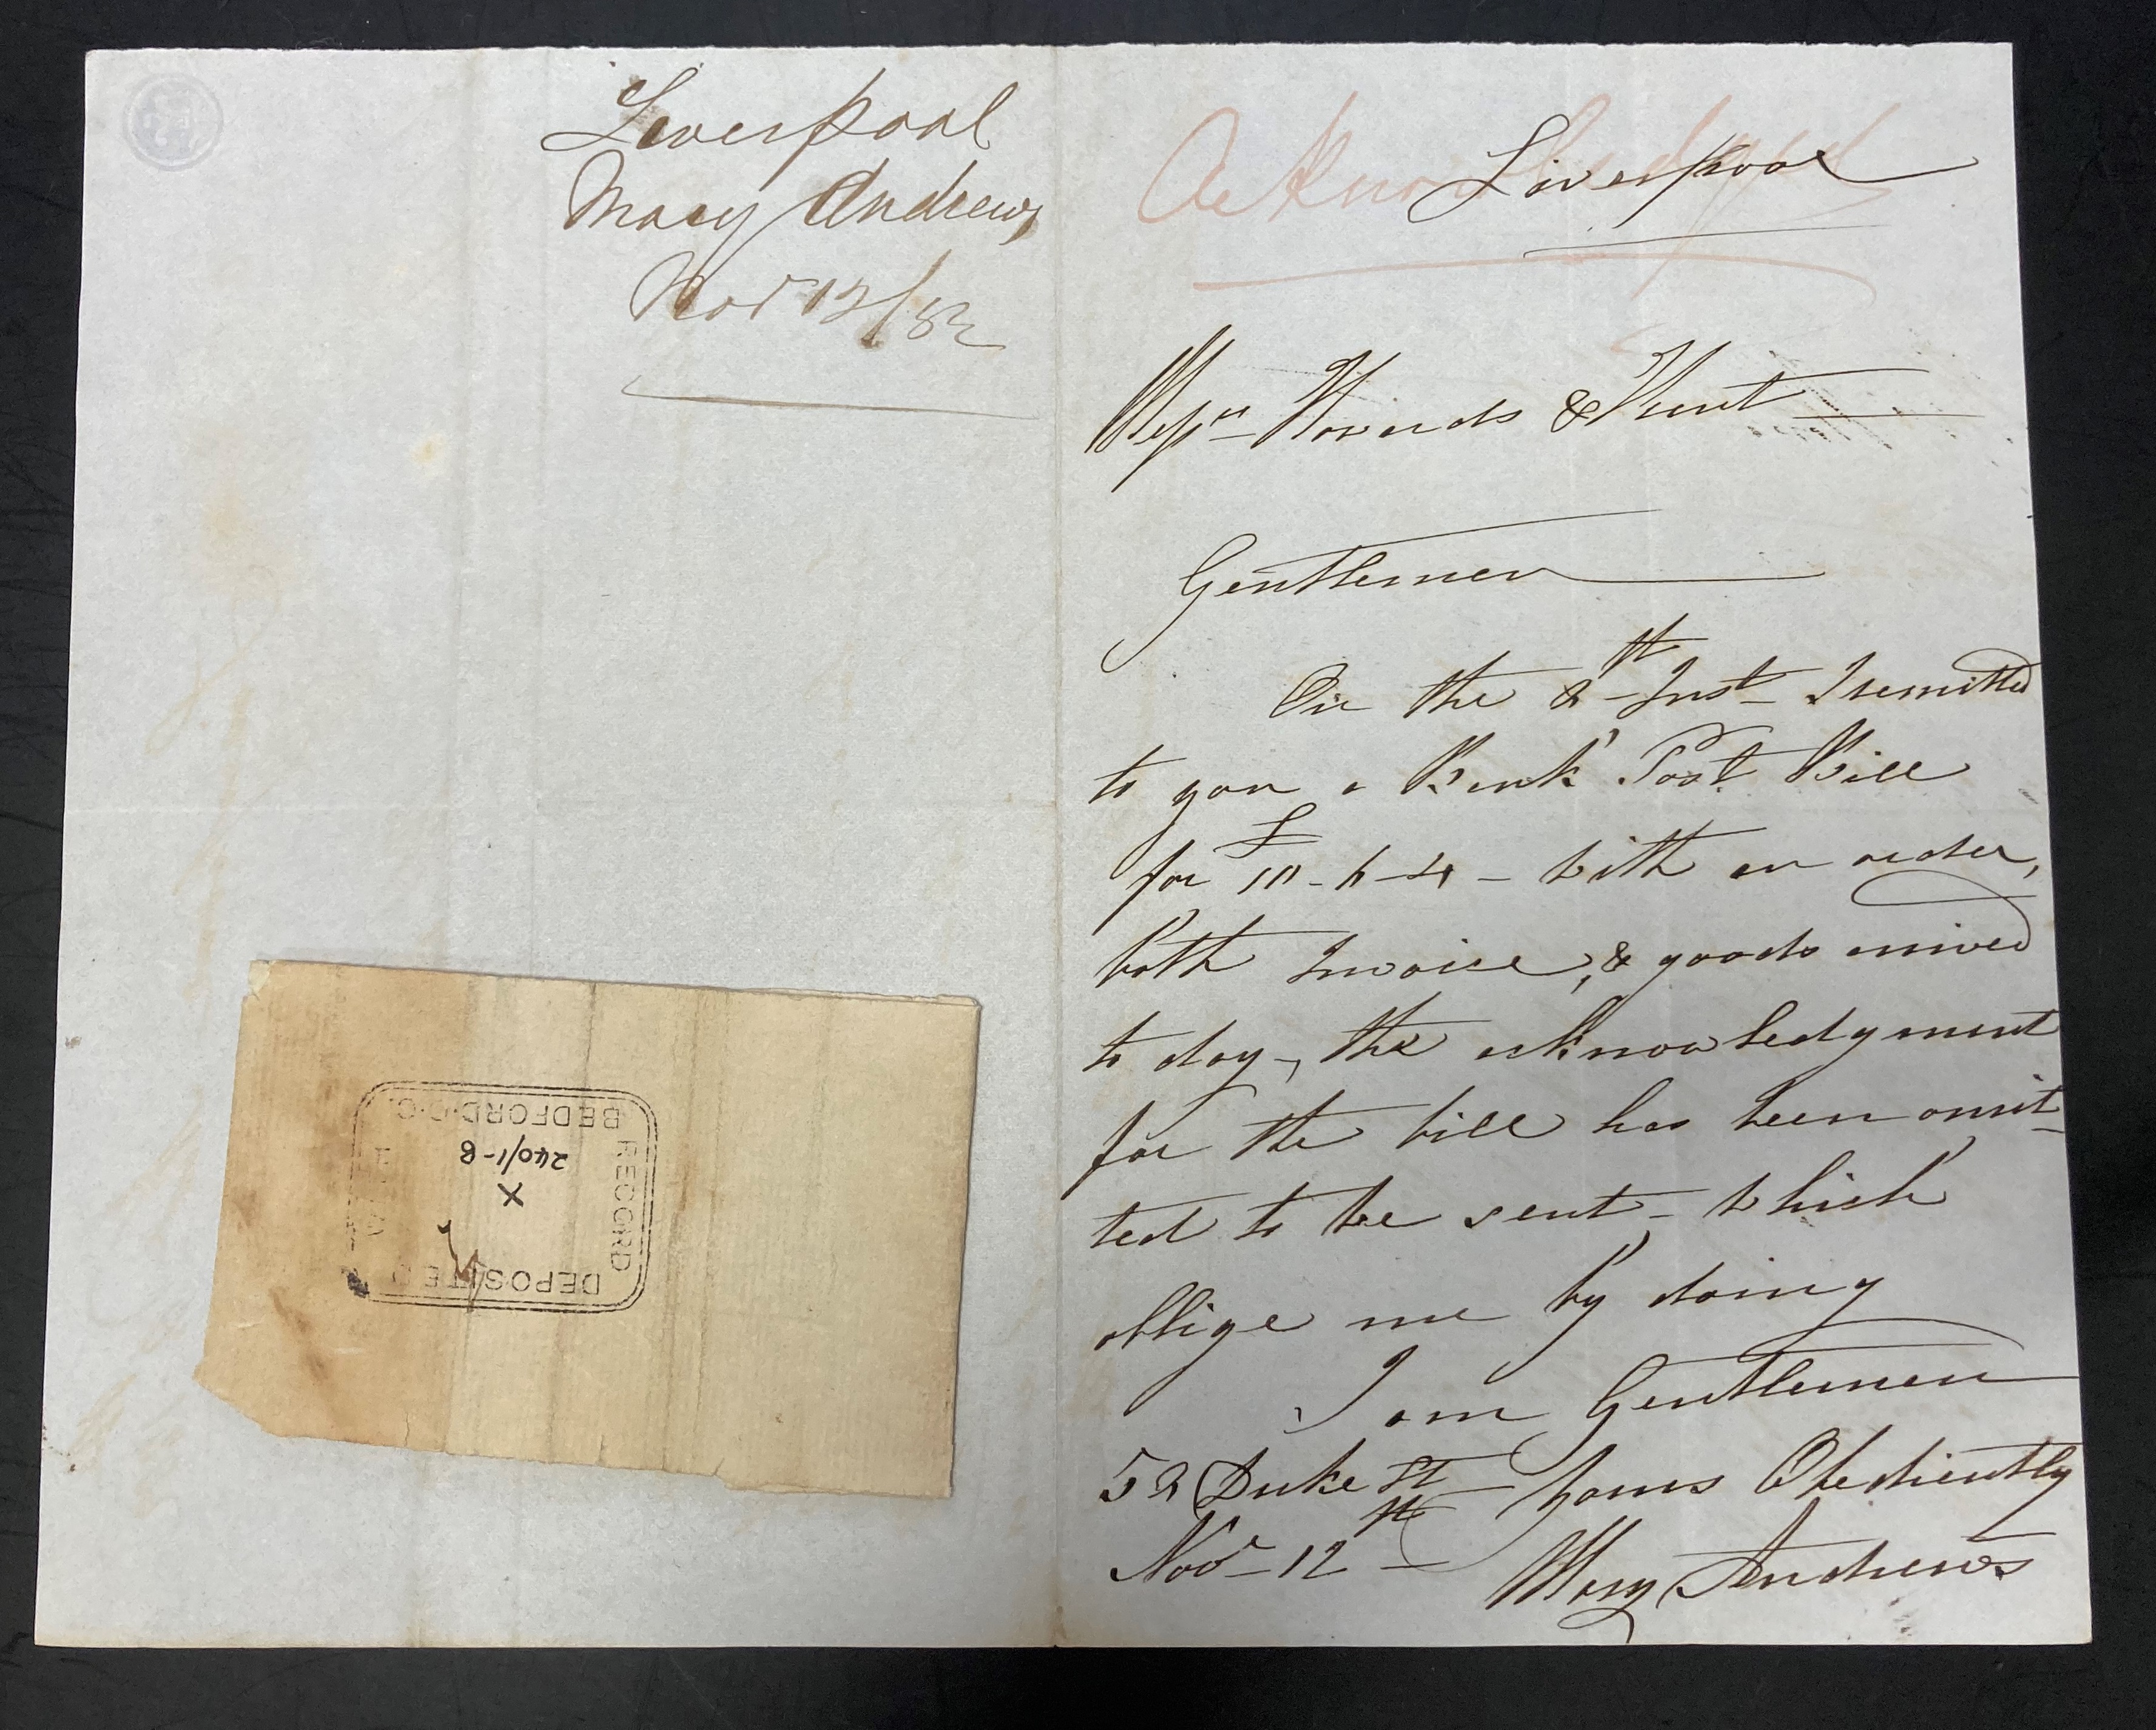 Liverpool
Mary Andrews
Novr 12/52
Acknowledged
Liverpool
Messrs Howards & Kent
Gentlemen
On the 8th Inst I remitted
to you a Bank Post Bill
for £10-6-4 - with an order,
both Invoice, & goods arrived
to day, the acknowledgment
for the bill has been omit
ted to be sent - which
oblige me by doing
I am Gentlemen
52 Duke St Yours Obediently
Novr 12th Mary Andrews
DEPOSITED
RECORD
X
240/1-8
BEDFORD.C.C.